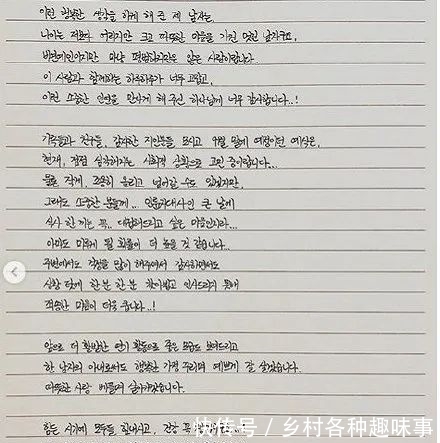 이런 행복한 상상을 하게 해 준 제 남자는,
나이는 저보다 어리지만 크고 따뜻한 마음을 가진 멋진 남자구요,
비연예인이지만 마냥 평범하지만은 않은 사람이랍니다
이 사람과 함께하는 하루하루가 너무 고맙고,
이런 소중한 인연을 만나게 해 주신 하나님께 너무 감사합니다..!
가족들과 친구들, 감사한 지인분들 모시고 9월 말에 예정이던 예식은,
현재, 점점 심각해지는 사회적 상황으로 고민 중이랍니다...
물론 작게, 조용히 올리고 넘어갈 수도 있겠지만,
그래도 소중한 분들께... 인륜지대사인 큰 날에
식사 한 끼는 꼭.. 대접해드리고 싶은 마음인지라...
아마도 미루게 될 확률이 더 높을 것 같습니다...
주변에서도 걱정을 많이 해주셔서 감사하면서도
사랑 덫에 한 분 한 분 찾아뵙고 인사드리지 못해
죄송한 마음이 더욱 큽니다..!
앞으로 더 활발한 연기 활동으로 좋은 모습도 보여드리고
한 남자의 아내로써도 행복한 가정 꾸리며 예쁘게 잘 살겠습니다.
따뜻한 사랑 베풀며 살아가겠습니다.
힘든 시기에 모두들 힘내시고, 건강 꼭
快传号 / 乡村各种趣味事